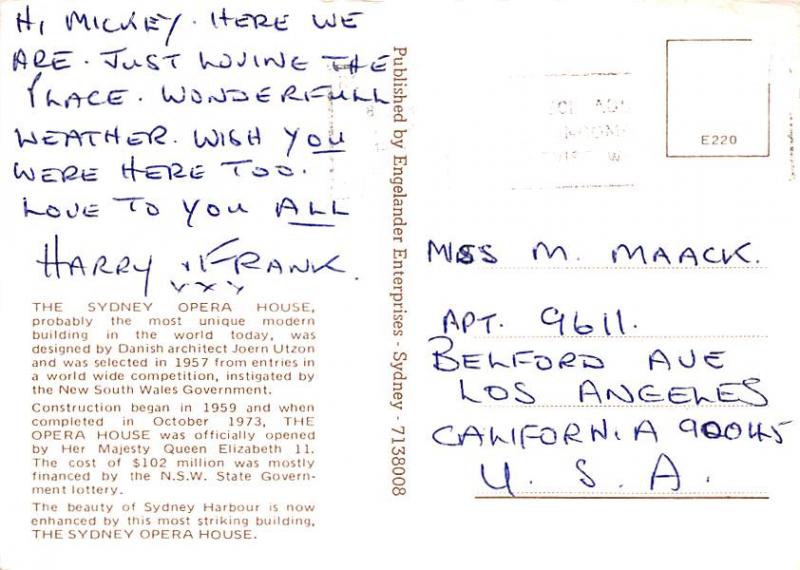 HI MICKEY. HERE WE
ARE. JUST LOVING THE
PLACE. WONDERFULL
WEATHER. WISH YOU
WERE HERE TOO.
LOVE TO YOU ALL
HARRY & FRANK.
XXX
THE SYDNEY OPERA HOUSE,
probably the most unique modern
building in the world today, was
designed by Danish architect Joern Utzon
and was selected in 1957 from entries in
a world wide competition, instigated by
the New South Wales Government.
Construction began in 1959 and when
completed in October 1973, THE
OPERA HOUSE was officially opened
by Her Majesty Queen Elizabeth 11.
The cost of $102 million was mostly
financed by the N.S.W. State Govern-
ment lottery.
The beauty of Sydney Harbour is now
enhanced by this most striking building,
THE SYDNEY OPERA HOUSE.
Published by Engelander Enterprises - Sydney - 7138008
E220
MISS M. MAACK.
APT. 9611.
BELFORD AVE
LOS ANGELES
CALIFORNIA 90045
U.S.A.